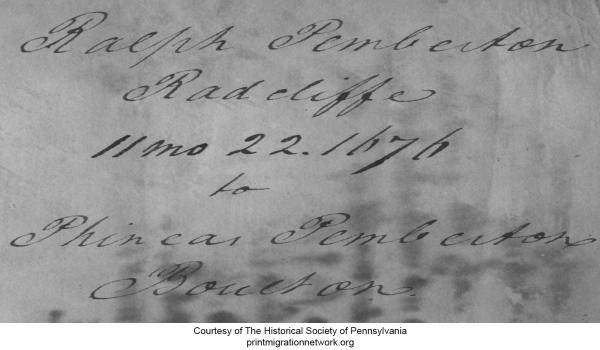 Ralph Pemberton
Radcliffe
11 mo 22. 1676
to
Phineas Pemberton
Boulton.
Courtesy of The Historical Society of Pennsylvania
printmigrationnetwork.org